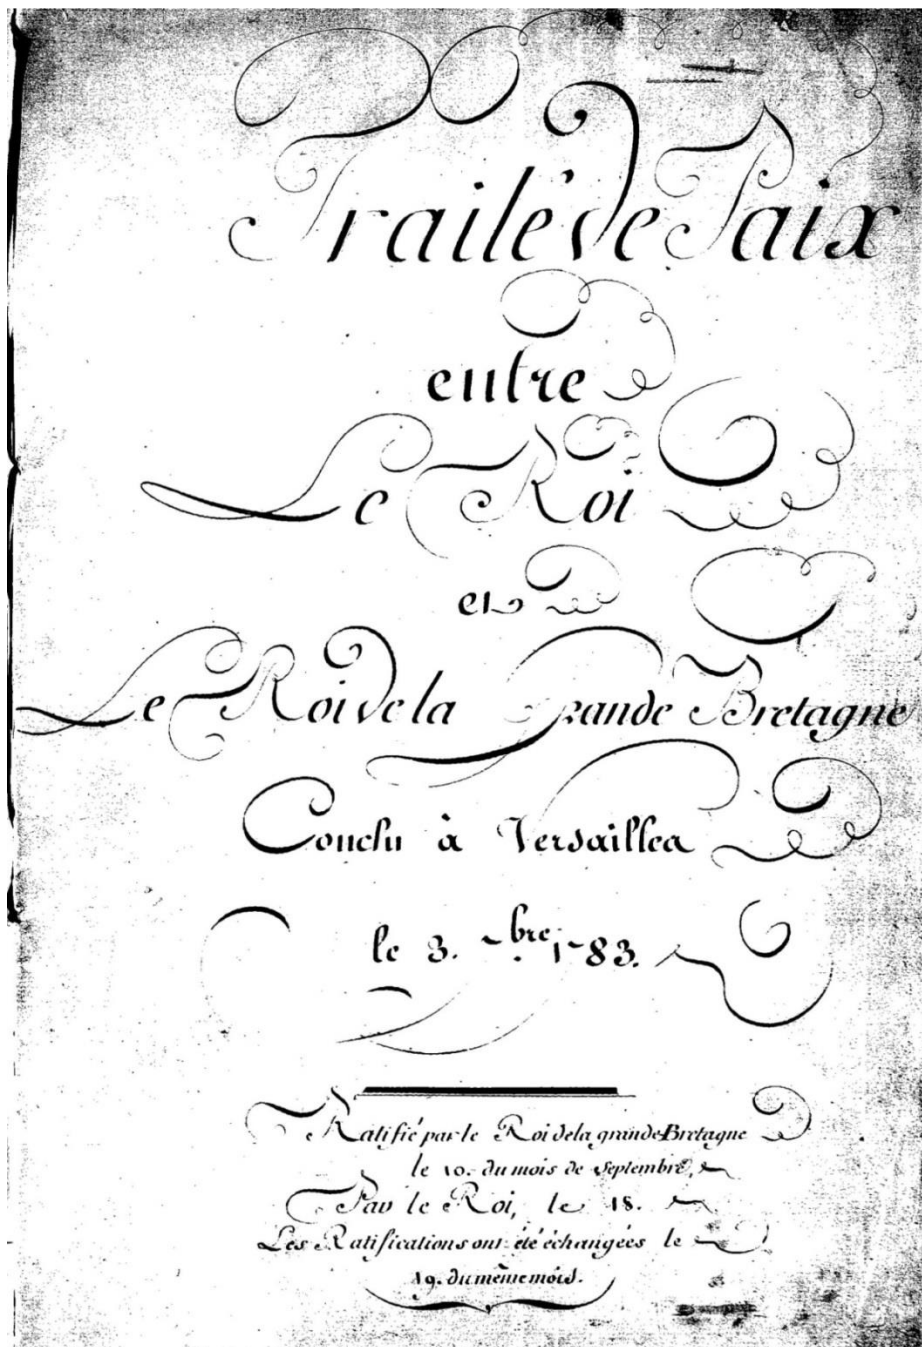 Traité de Paix
entre
Le Roi
et
Le Roi de la Grande Bretagne
Conclu à Versailles
le 3. 7bre 1783.
Ratifié par le Roi de la grande Bretagne
le 10. du mois de Septembre,
Par le Roi, le 18.
Les Ratifications ont été échangées le
19. du même mois.